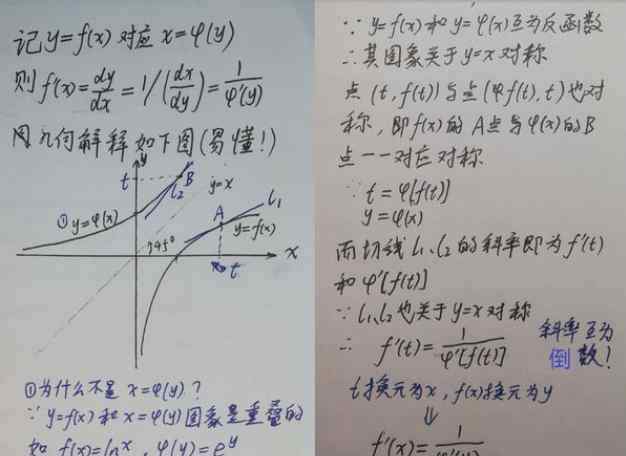 记y=f(x)对应x=φ(y)
则f'(x)=dy/dx=1/(dx/dy)=1/φ'(y)
用几何解释如下图(易懂!)
y
t
B
l₂
y=x
l₁
①y=φ(x)
A
y=f(x)
45°
x
t
①为什么不是x=φ(y)?
∵y=f(x)和x=φ(y)图象是重叠的
如f(x)=lnx,φ(y)=e^y
∵y=f(x)和y=φ(x)互为反函数
∴其图象关于y=x对称
点(t,f(t))与点(φf(t),t)也对
称,即f(x)的A点与φ(x)的B
点一一对应对称
∵t=φ[f(t)]
y=φ(x)
而切线l₁、l₂的斜率即为f'(t)
和φ'[f(t)]
∵l₁、l₂也关于y=x对称
∴f'(t)=1/φ'[f(t)]
斜率互为
倒数!
t换元为x,f(x)换元为y
⇓
f'(x)=1/φ'(y)